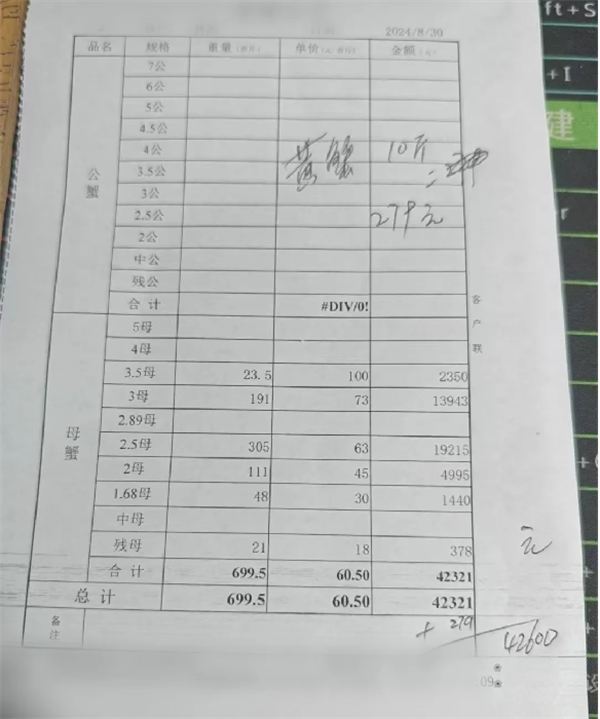 2024/8/30
品名 规格 重量（市斤） 单价（元/市斤） 金额（元）
公蟹
7公
6公
5公
4.5公
4公
3.5公
3公
2.5公
2公
中公
残公
合 计 #DIV/0!
黄蟹 10斤
279元
母蟹
5母
4母
3.5母 23.5 100 2350
3母 191 73 13943
2.89母
2.5母 305 63 19215
2母 111 45 4995
1.68母 48 30 1440
中母
残母 21 18 378
合 计 699.5 60.50 42321
总 计 699.5 60.50 42321
备注
+ 279
42600
元
客户联
09
ft+S
+I
建
r
+
设